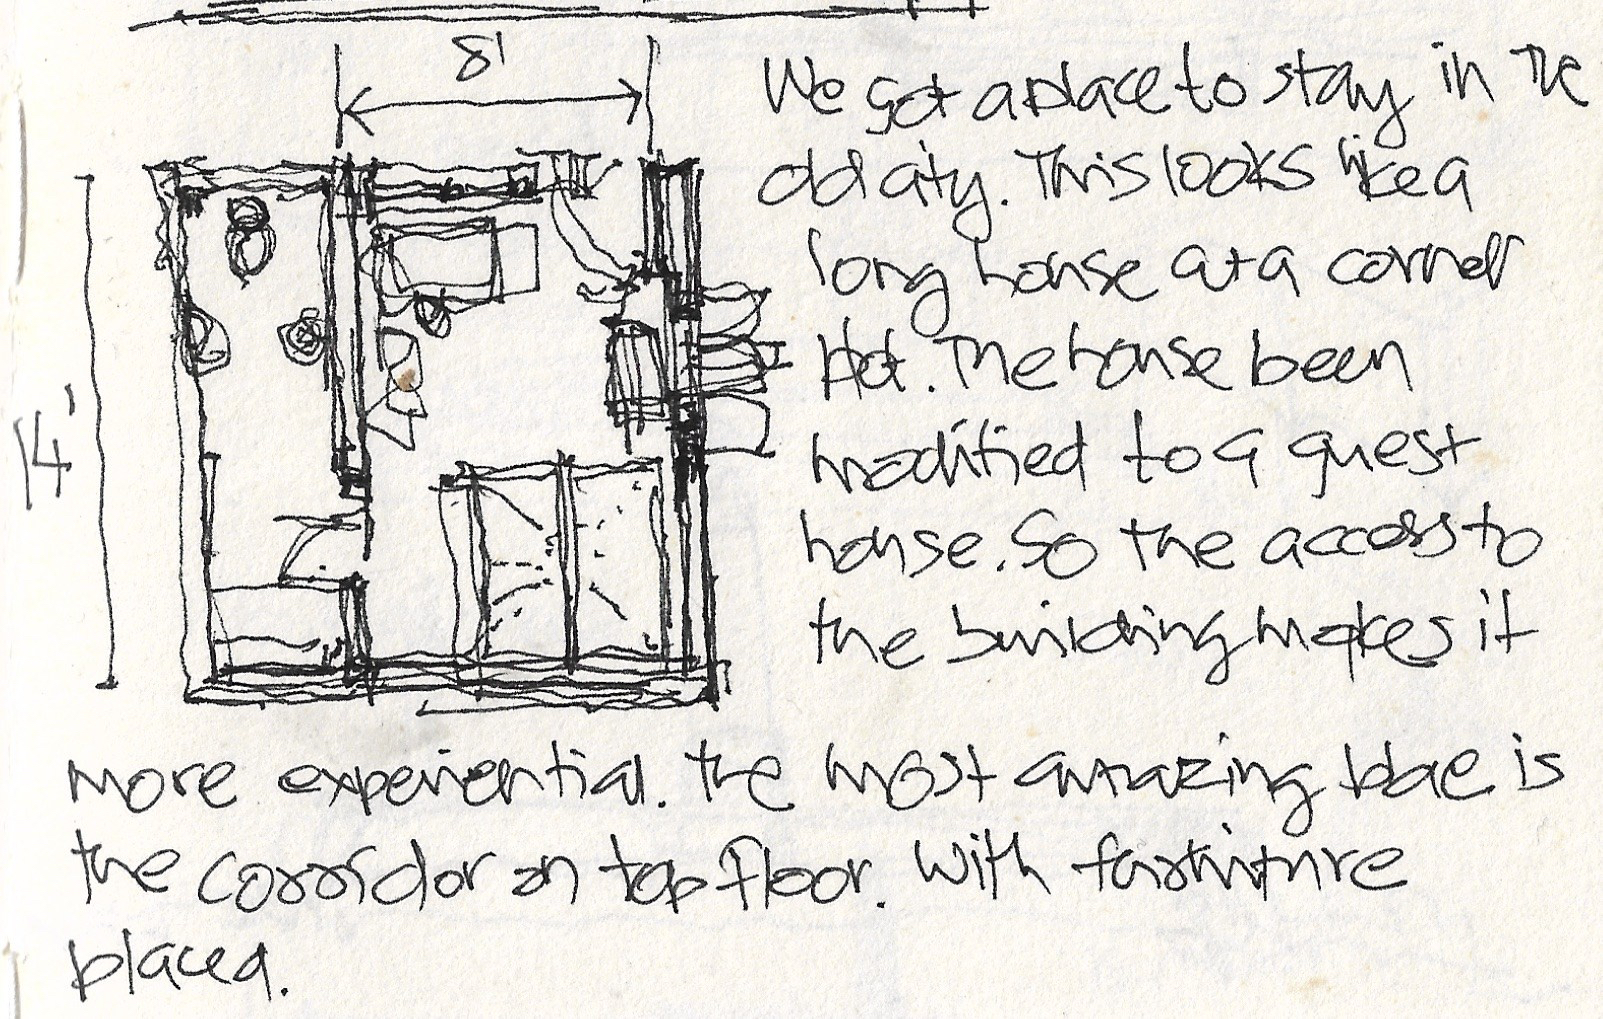 8'
14'
We got a place to stay in the
old city. This looks like a
long house at a corner
Plot. The house been
modified to a guest
house. So the access to
the building makes it
more experiential. the most amazing place is
the corridor on top floor. With furniture
placed.